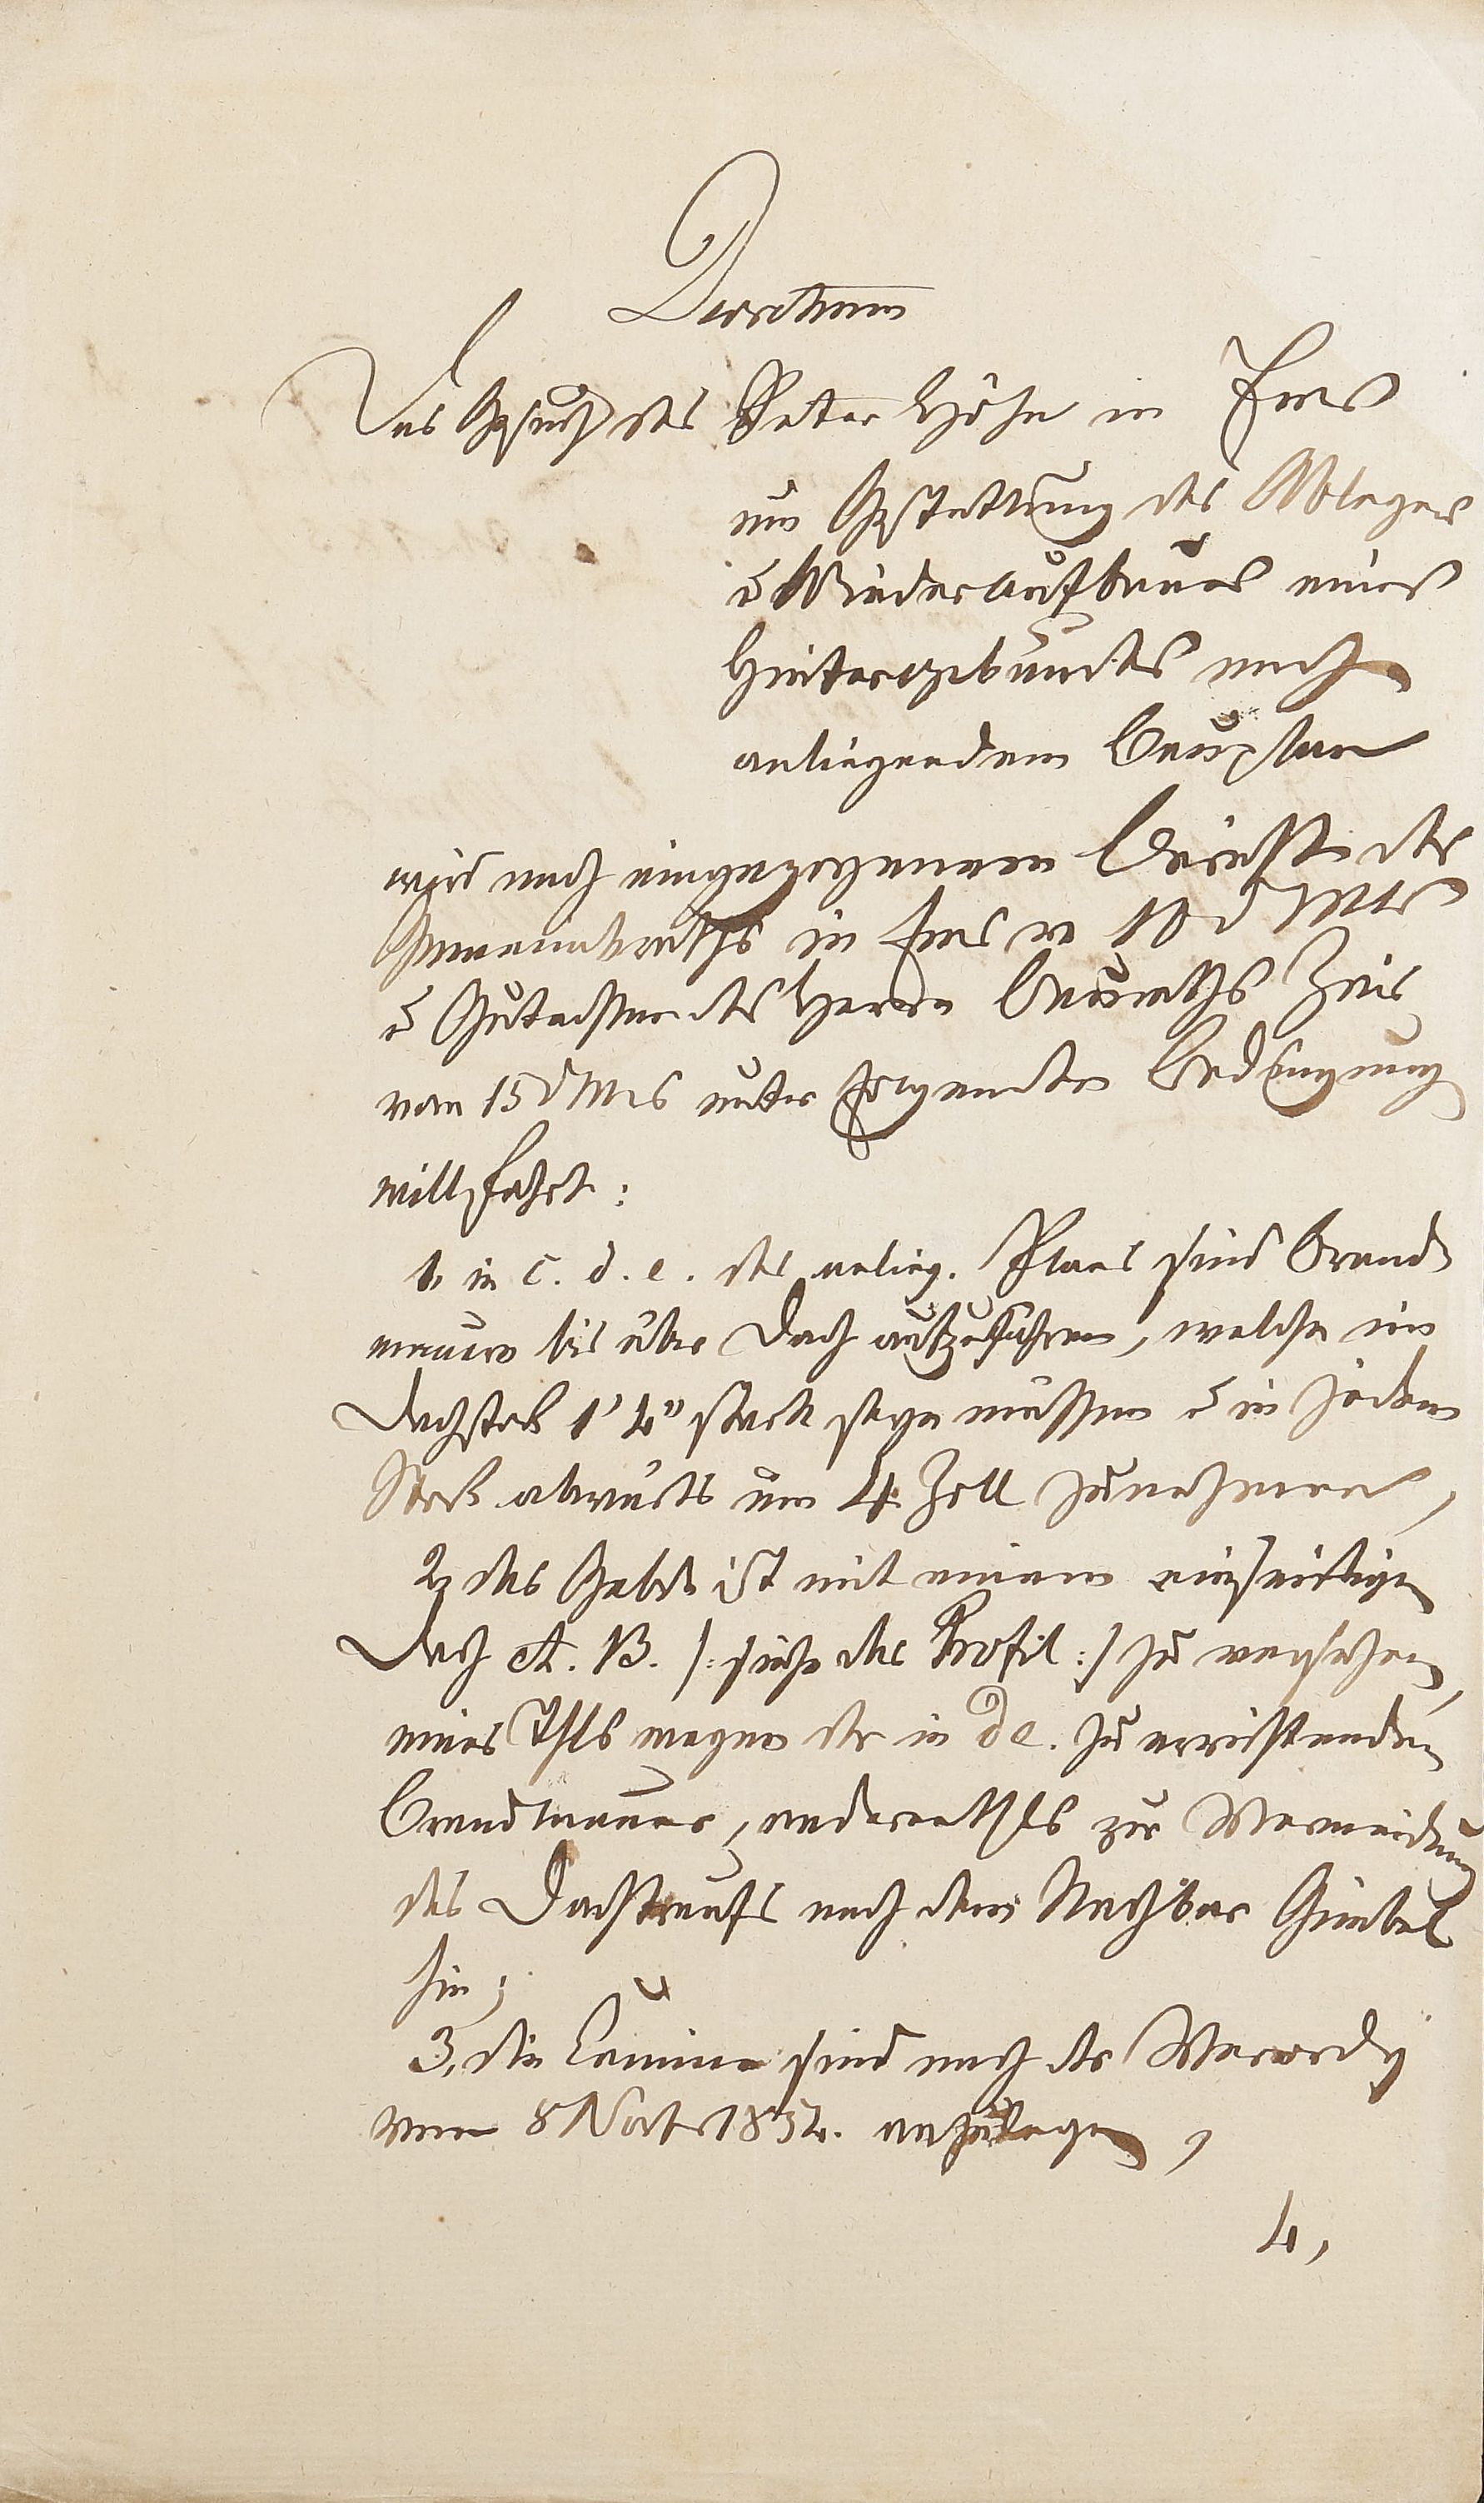 Decretum
Das Gesuch des Peter Höhn in Ems
um Gestattung des Ablegens
u Wiederaufbaues eines
Hintergebäudes nach
anliegendem Bauplan
wird nach eingezogenem Bericht des
Gemeinderaths in Ems v 10 d Mts
u Gutachten des Herrn Bauraths Zais
vom 15 d Mts unter folgenden Bedingung
willfahrt:
1, in c. d. e. des anlieg. Plans sind Brand
mauern bis über Dach aufzuführen, welche im
Dachstock 1' 4" stark seyn müssen u in jedem
Stock abwärts um 4 Zoll zunehmen,
2, das Gebde ist mit einem einseitigen
Dach A. B. /: siehe das Profil :/ zu versehen,
eines Thls wegen der in de. zu errichtenden
Brandmauer, anderenthls zur Vermeidung
des Dachtraufs nach dem Nachbar Gimbel
hin;
3, die Camine sind nach der Verordg
vom 8 Novbr 1832. anzulegen,
4,